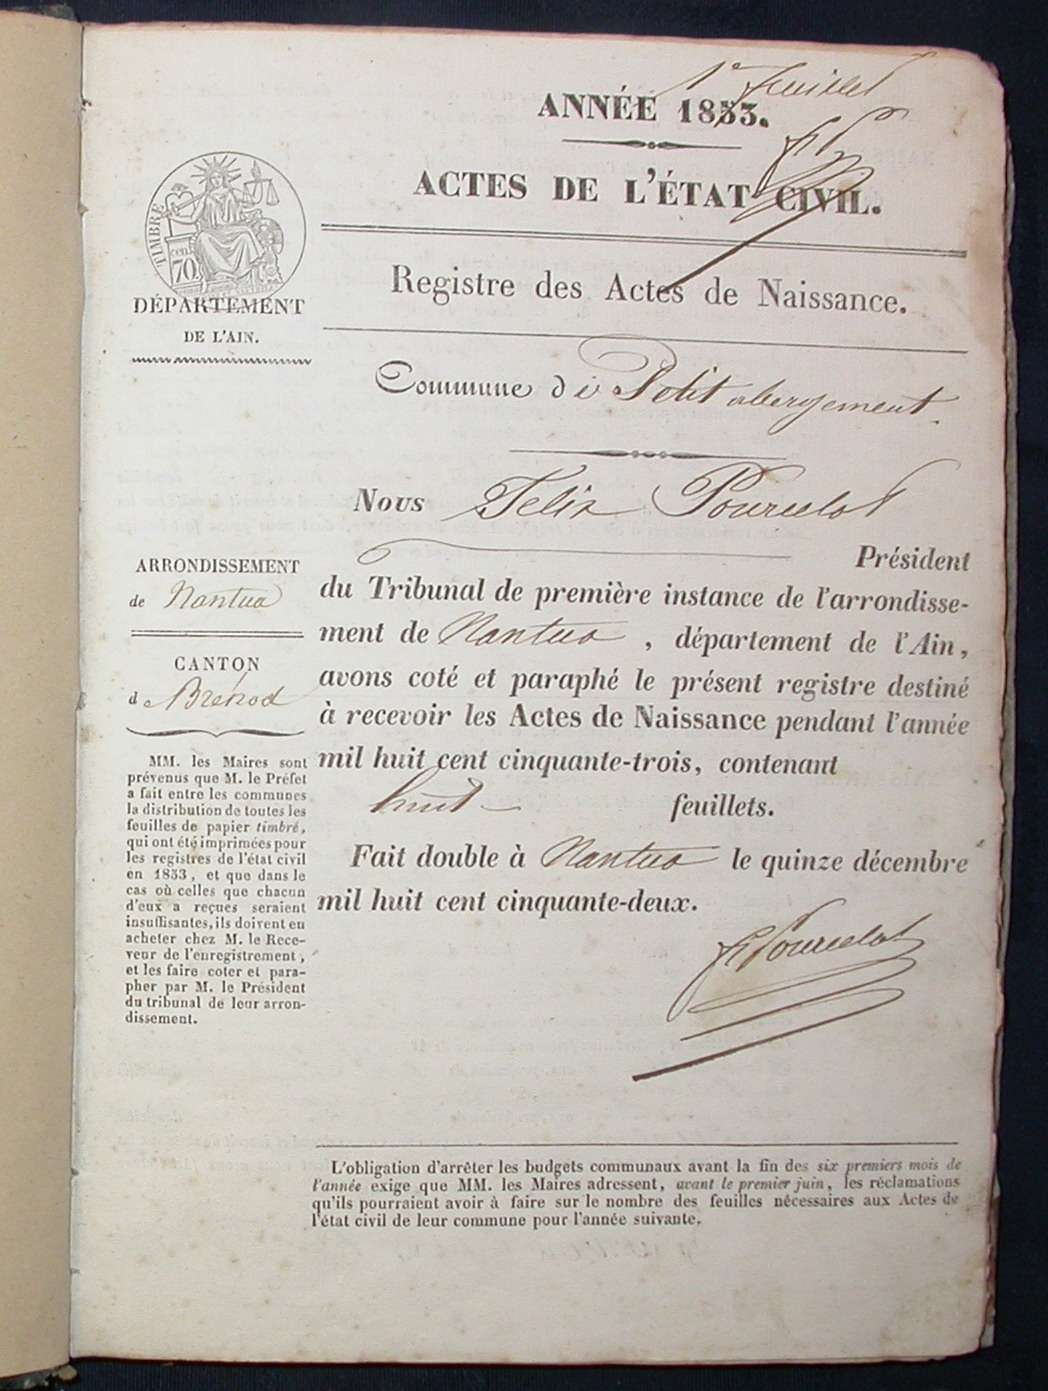 1er feuillet
ANNÉE 1853.
ACTES DE L'ÉTAT CIVIL.
TIMBRE
70
DÉPARTEMENT
DE L'AIN.
Registre des Actes de Naissance.
Commune de Petit abergement
Nous Felix Pourcelot
Président
du Tribunal de première instance de l'arrondisse-
ment de Nantua, département de l'Ain,
avons coté et paraphé le présent registre destiné
à recevoir les Actes de Naissance pendant l'année
mil huit cent cinquante-trois, contenant
huit feuillets.
Fait double à Nantua le quinze décembre
mil huit cent cinquante-deux.
F Pourcelot
ARRONDISSEMENT
de Nantua
CANTON
de Brénod
MM. les Maires sont
prévenus que M. le Préfet
a fait entre les communes
la distribution de toutes les
feuilles de papier timbré,
qui ont été imprimées pour
les registres de l'état civil
en 1853, et que dans le
cas où celles que chacun
d'eux a reçues seraient
insuffisantes, ils doivent en
acheter chez M. le Rece-
veur de l'enregistrement,
et les faire coter et para-
pher par M. le Président
du tribunal de leur arron-
dissement.
L'obligation d'arrêter les budgets communaux avant la fin des six premiers mois de
l'année exige que MM. les Maires adressent, avant le premier juin, les réclamations
qu'ils pourraient avoir à faire sur le nombre des feuilles nécessaires aux Actes de
l'état civil de leur commune pour l'année suivante.